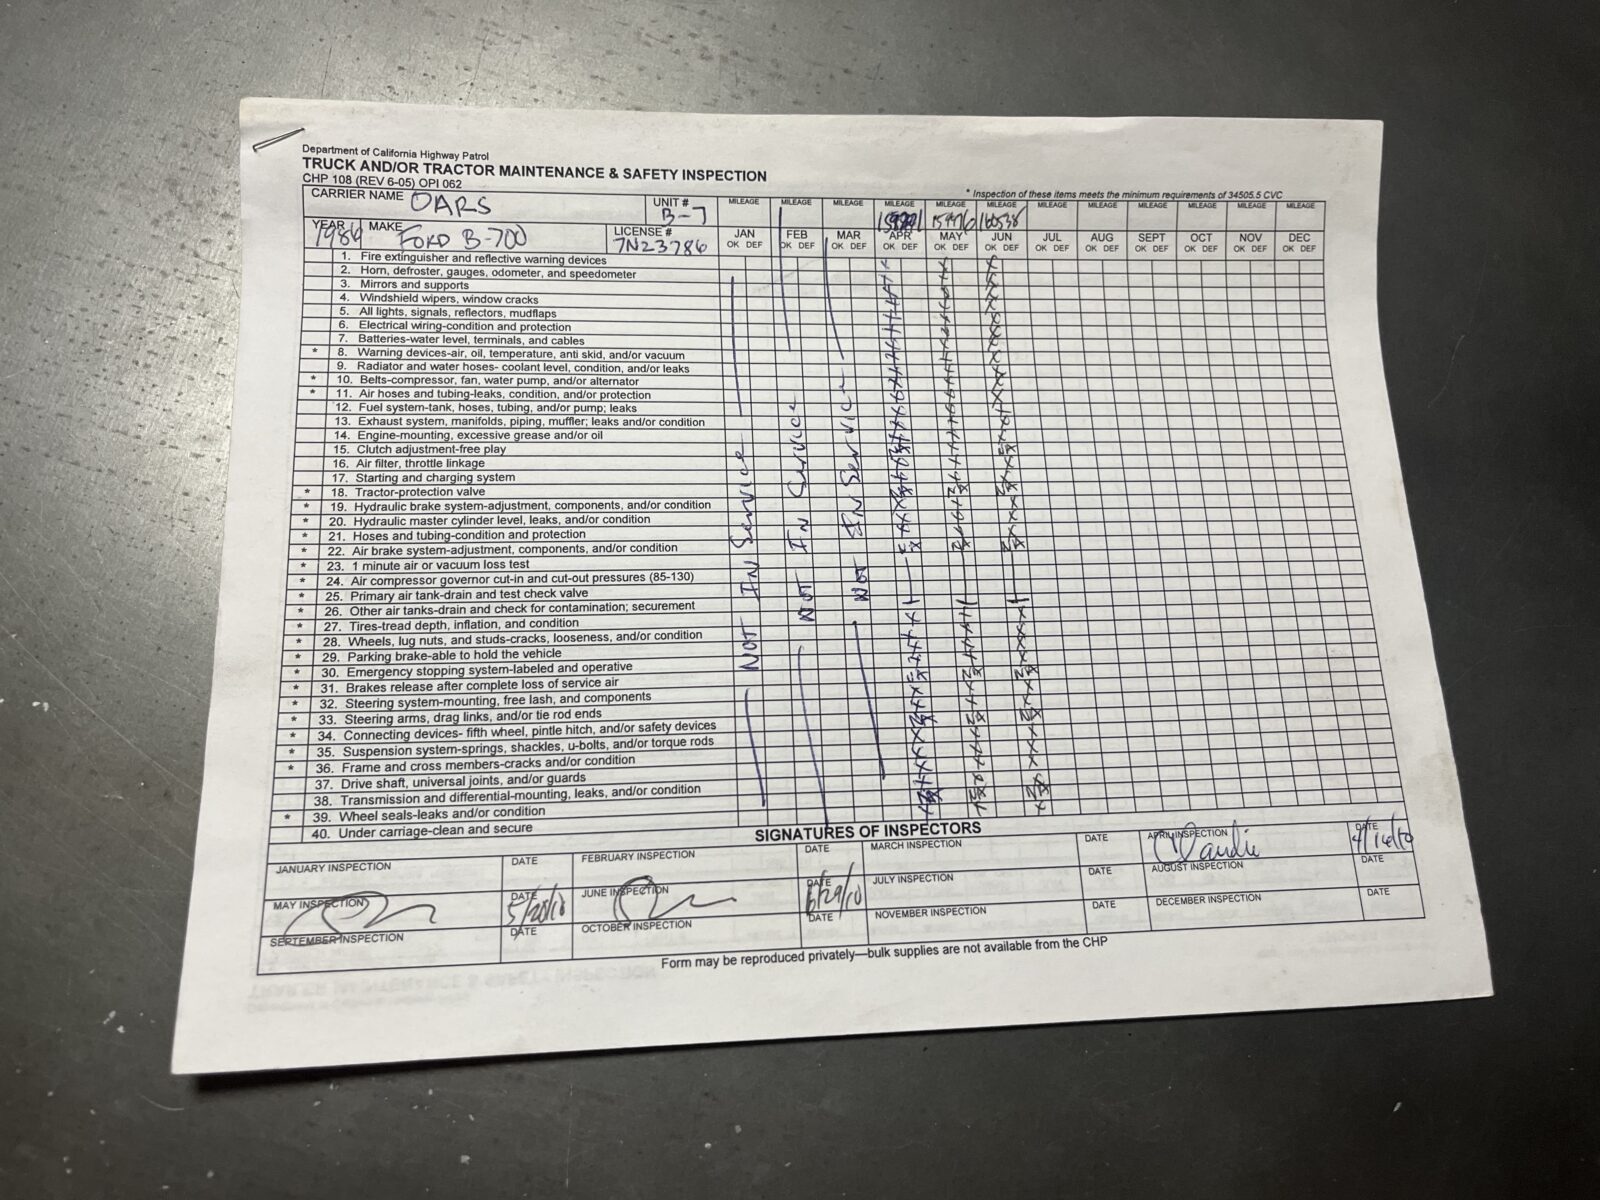 Department of California Highway Patrol
TRUCK AND/OR TRACTOR MAINTENANCE & SAFETY INSPECTION
CHP 108 (REV 6-05) OPI 062
* Inspection of these items meets the minimum requirements of 34505.5 CVC
CARRIER NAME OARS
UNIT # B-7
MILEAGE MILEAGE MILEAGE MILEAGE MILEAGE MILEAGE MILEAGE MILEAGE MILEAGE MILEAGE MILEAGE MILEAGE
160538
YEAR 1986 MAKE FORD B-700
LICENSE # 7N23786
JAN FEB MAR APR MAY JUN JUL AUG SEPT OCT NOV DEC
OK DEF OK DEF OK DEF OK DEF OK DEF OK DEF OK DEF OK DEF OK DEF OK DEF OK DEF OK DEF
1. Fire extinguisher and reflective warning devices
2. Horn, defroster, gauges, odometer, and speedometer
3. Mirrors and supports
4. Windshield wipers, window cracks
5. All lights, signals, reflectors, mudflaps
6. Electrical wiring-condition and protection
7. Batteries-water level, terminals, and cables
* 8. Warning devices-air, oil, temperature, anti skid, and/or vacuum
9. Radiator and water hoses- coolant level, condition, and/or leaks
* 10. Belts-compressor, fan, water pump, and/or alternator
* 11. Air hoses and tubing-leaks, condition, and/or protection
12. Fuel system-tank, hoses, tubing, and/or pump; leaks
13. Exhaust system, manifolds, piping, muffler; leaks and/or condition
14. Engine-mounting, excessive grease and/or oil
15. Clutch adjustment-free play
16. Air filter, throttle linkage
17. Starting and charging system
* 18. Tractor-protection valve
* 19. Hydraulic brake system-adjustment, components, and/or condition
* 20. Hydraulic master cylinder level, leaks, and/or condition
* 21. Hoses and tubing-condition and protection
* 22. Air brake system-adjustment, components, and/or condition
* 23. 1 minute air or vacuum loss test
* 24. Air compressor governor cut-in and cut-out pressures (85-130)
* 25. Primary air tank-drain and test check valve
* 26. Other air tanks-drain and check for contamination; securement
* 27. Tires-tread depth, inflation, and condition
* 28. Wheels, lug nuts, and studs-cracks, looseness, and/or condition
* 29. Parking brake-able to hold the vehicle
* 30. Emergency stopping system-labeled and operative
* 31. Brakes release after complete loss of service air
* 32. Steering system-mounting, free lash, and components
* 33. Steering arms, drag links, and/or tie rod ends
* 34. Connecting devices- fifth wheel, pintle hitch, and/or safety devices
* 35. Suspension system-springs, shackles, u-bolts, and/or torque rods
* 36. Frame and cross members-cracks and/or condition
37. Drive shaft, universal joints, and/or guards
38. Transmission and differential-mounting, leaks, and/or condition
* 39. Wheel seals-leaks and/or condition
40. Under carriage-clean and secure
NOT IN Service
NOT IN Service
NOT IN Service
SIGNATURES OF INSPECTORS
JANUARY INSPECTION DATE FEBRUARY INSPECTION DATE MARCH INSPECTION DATE APRIL INSPECTION DATE
MAY INSPECTION DATE 5/20/10 JUNE INSPECTION DATE 6/29/10 JULY INSPECTION DATE AUGUST INSPECTION DATE
SEPTEMBER INSPECTION DATE OCTOBER INSPECTION DATE NOVEMBER INSPECTION DATE DECEMBER INSPECTION DATE
Form may be reproduced privately—bulk supplies are not available from the CHP